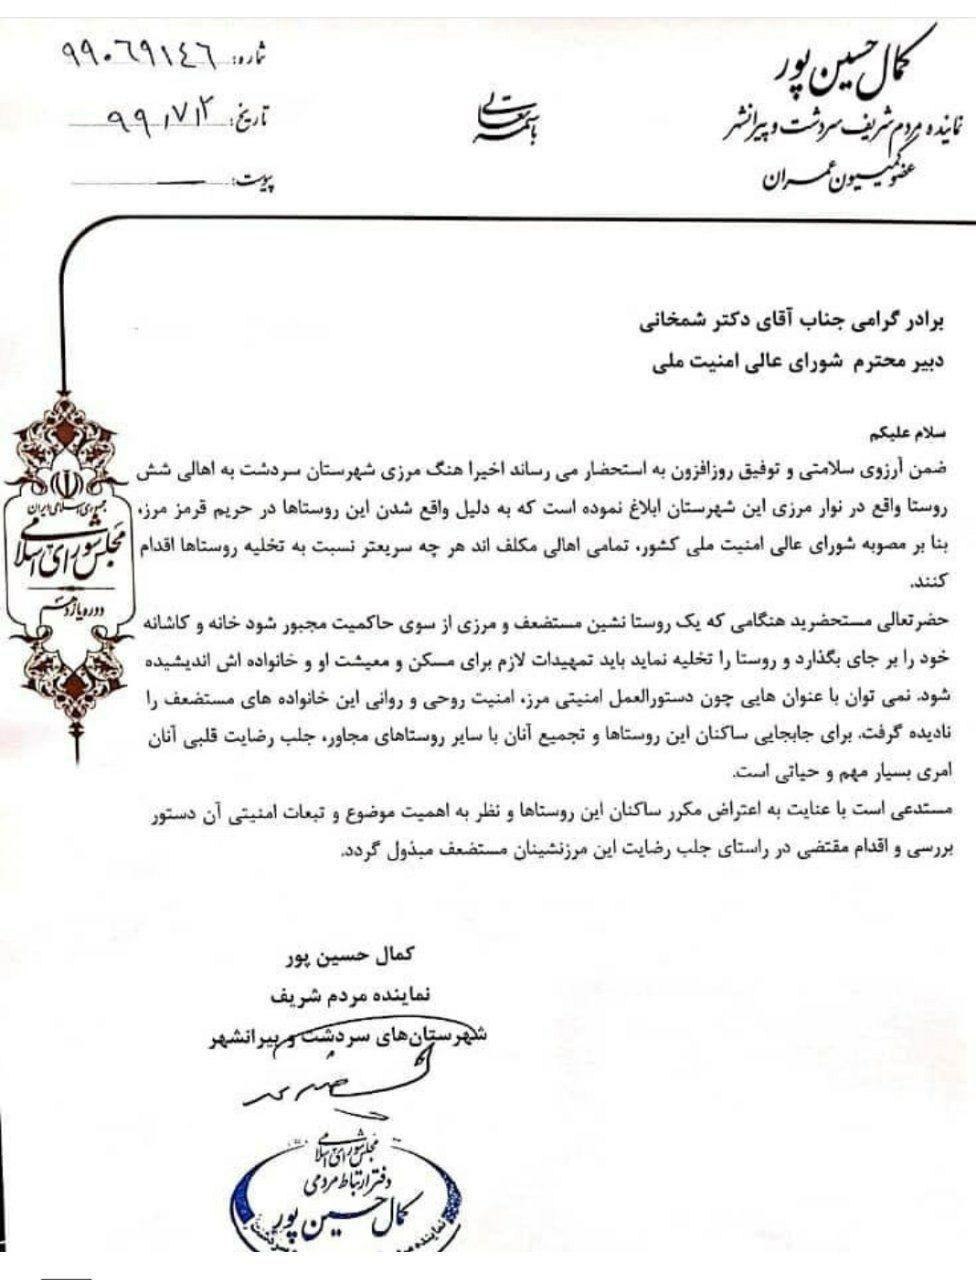 کمال حسین پور
نماینده مردم شریف سردشت و پیرانشهر
عضو کمیسیون عمران
باسمه تعالی
شماره: ۹۹۰۶۹۱۴۶
تاریخ: ۹۹/۷/۲
پیوست:
برادر گرامی جناب آقای دکتر شمخانی
دبیر محترم شورای عالی امنیت ملی
سلام علیکم
ضمن آرزوی سلامتی و توفیق روزافزون به استحضار می رساند اخیرا هنگ مرزی شهرستان سردشت به اهالی شش
روستا واقع در نوار مرزی این شهرستان ابلاغ نموده است که به دلیل واقع شدن این روستاها در حریم قرمز مرز،
بنا بر مصوبه شورای عالی امنیت ملی کشور، تمامی اهالی مکلف اند هر چه سریعتر نسبت به تخلیه روستاها اقدام
کنند.
حضرتعالی مستحضرید هنگامی که یک روستا نشین مستضعف و مرزی از سوی حاکمیت مجبور شود خانه و کاشانه
خود را بر جای بگذارد و روستا را تخلیه نماید باید تمهیدات لازم برای مسکن و معیشت او و خانواده اش اندیشیده
شود. نمی توان با عنوان هایی چون دستورالعمل امنیتی مرز، امنیت روحی و روانی این خانواده های مستضعف را
نادیده گرفت. برای جابجایی ساکنان این روستاها و تجمیع آنان با سایر روستاهای مجاور، جلب رضایت قلبی آنان
امری بسیار مهم و حیاتی است.
مستدعی است با عنایت به اعتراض مکرر ساکنان این روستاها و نظر به اهمیت موضوع و تبعات امنیتی آن دستور
بررسی و اقدام مقتضی در راستای جلب رضایت این مرزنشینان مستضعف مبذول گردد.
جمهوری اسلامی ایران
مجلس شورای اسلامی
دوره یازدهم
کمال حسین پور
نماینده مردم شریف
شهرستان‌های سردشت و پیرانشهر
مجلس شورای اسلامی
دفتر ارتباط مردمی
کمال حسین پور
نماینده
سردشت